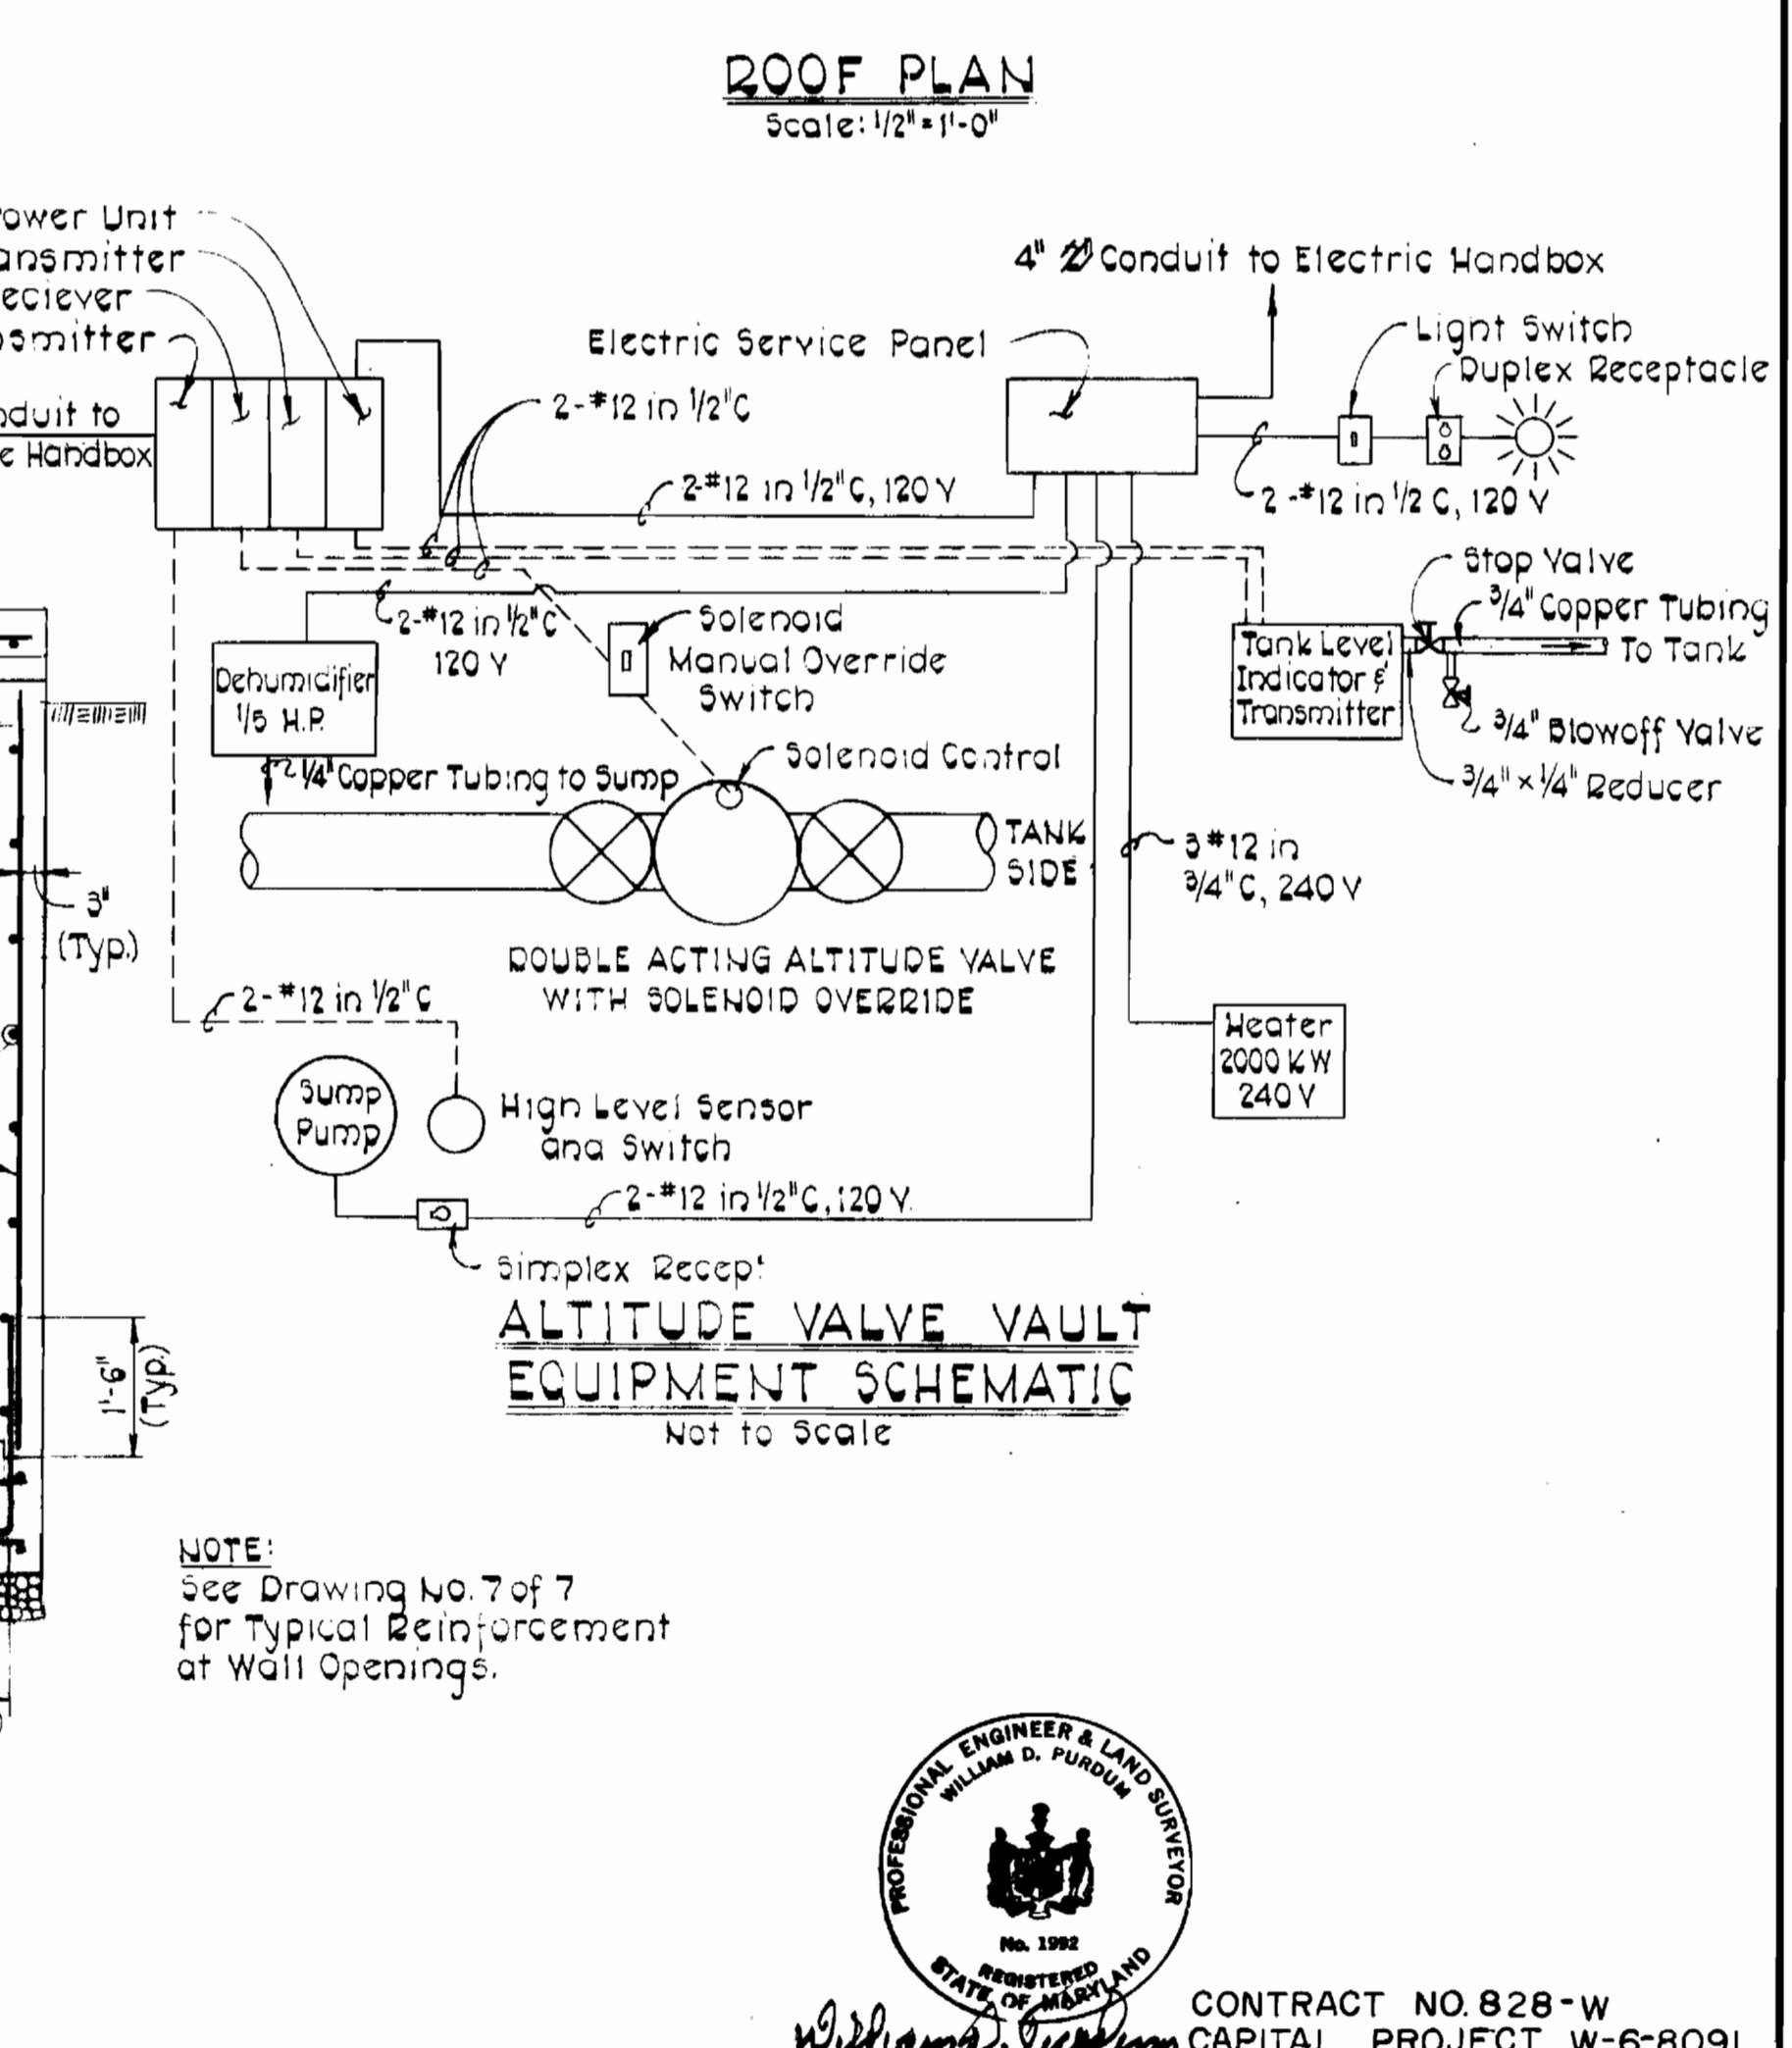 ROOF PLAN
Scale: 1/2" = 1'-0"
ower Unit
ansmitter
eciever
smitter
nduit to
e Handbox
4" Conduit to Electric Handbox
Electric Service Panel
Light Switch
Duplex Receptacle
2-#12 in 1/2"C
2-#12 in 1/2"C, 120 V
2-#12 in 1/2 C, 120 V
Stop Valve
3/4" Copper Tubing
To Tank
Tank Level
Indicator &
Transmitter
3/4" Blowoff Valve
3/4" x 1/4" Reducer
2-#12 in 1/2"C
120 V
Solenoid
Manual Override
Switch
Dehumidifier
1/5 H.P.
1/4" Copper Tubing to Sump
Solenoid Control
TANK
SIDE
3 #12 in
3/4"C, 240 V
3"
(Typ.)
DOUBLE ACTING ALTITUDE VALVE
WITH SOLENOID OVERRIDE
2-#12 in 1/2"C
Heater
2000 KW
240 V
Sump
Pump
High Level Sensor
and Switch
2-#12 in 1/2"C, 120 V.
Simplex Recept
ALTITUDE VALVE VAULT
EQUIPMENT SCHEMATIC
Not to Scale
1'-6"
(Typ.)
NOTE:
See Drawing No. 7 of 7
for Typical Reinforcement
at Wall Openings.
PROFESSIONAL ENGINEER & LAND SURVEYOR
WILLIAM D. PURDUM
No. 1992
REGISTERED
STATE OF MARYLAND
CONTRACT NO. 828-W
CAPITAL PROJECT W-6-8091